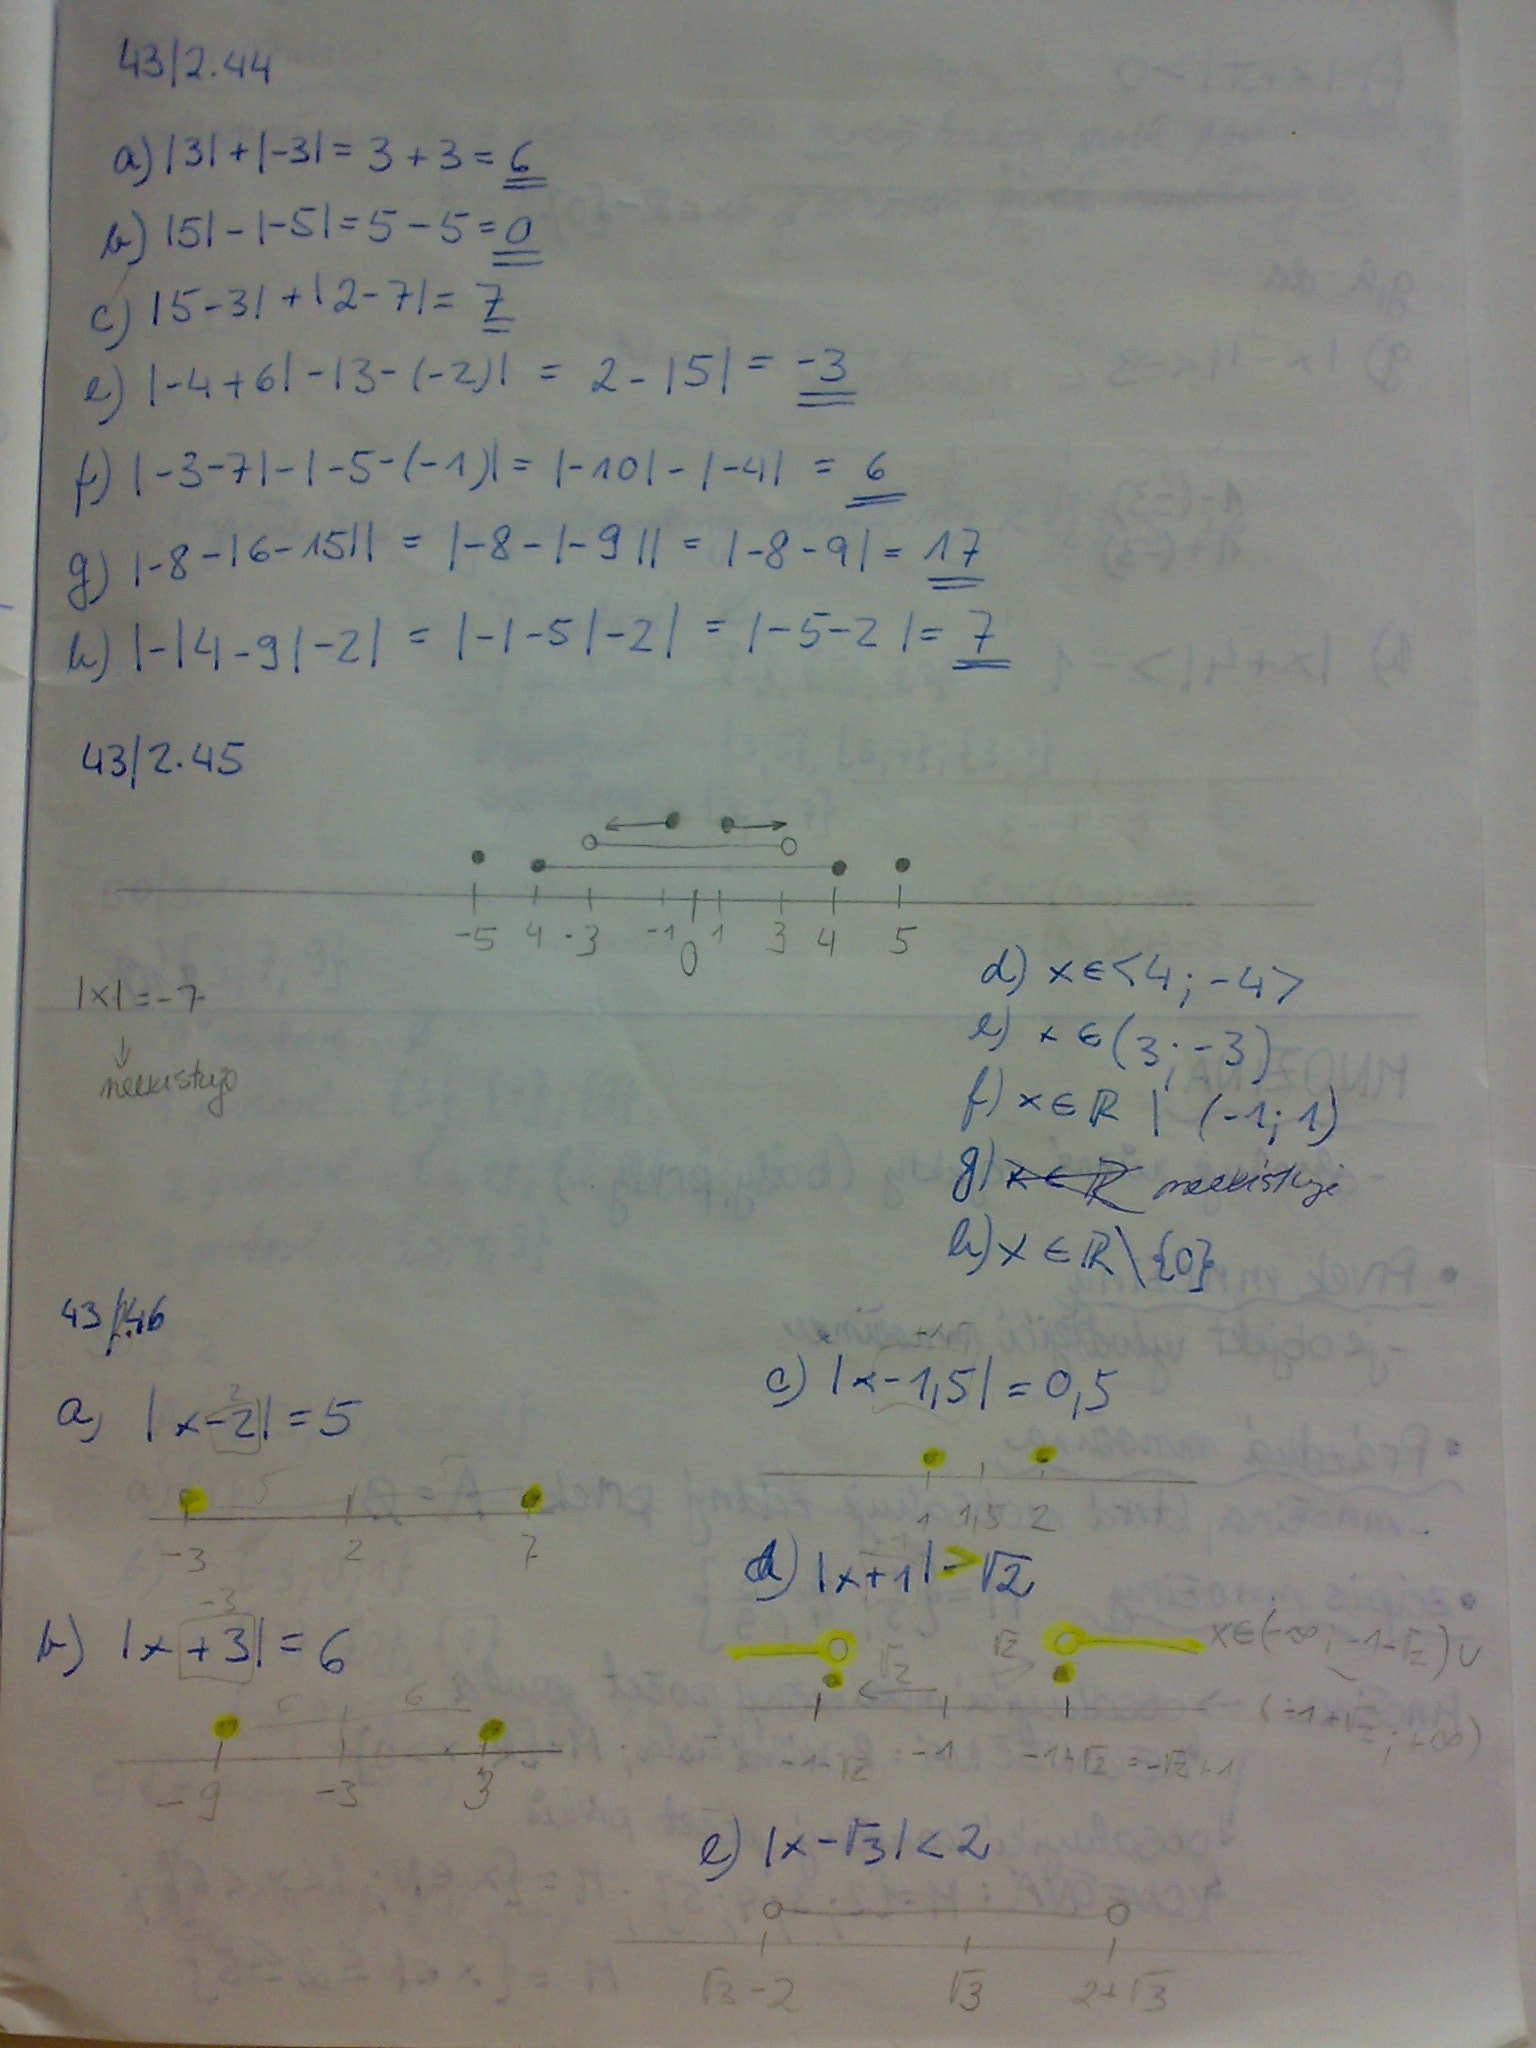 43/2.44
a) |3| + |-3| = 3 + 3 = 6
b) |5| - |-5| = 5 - 5 = 0
c) |5-3| + |2-7| = 7
e) |-4+6| - |3-(-2)| = 2 - |5| = -3
f) |-3-7| - |-5-(-1)| = |-10| - |-4| = 6
g) |-8-|6-15|| = |-8-|-9|| = |-8-9| = 17
h) |-|4-9|-2| = |-|-5|-2| = |-5-2| = 7
43/2.45
-5 4 -3 -1 0 1 3 4 5
|x| = -7
↓
neexistuje
d) x ∈ <4; -4>
e) x ∈ (3; -3)
f) x ∈ ℝ \ (-1; 1)
g) x ∈ ℝ neexistuje
h) x ∈ ℝ \ {0}
43/46
a) |x-2| = 5
2
5
-3 2 7
b) |x+3| = 6
-3
6 6
-9 -3 3
c) |x-1,5| = 0,5
1 1,5 2
d) |x+1| > √2
√2 √2
x∈(-∞; -1-√2) ∪
(-1+√2; +∞)
-1-√2 -1 -1+√2 = -√2+1
e) |x-√3| < 2
√3-2 √3 2+√3